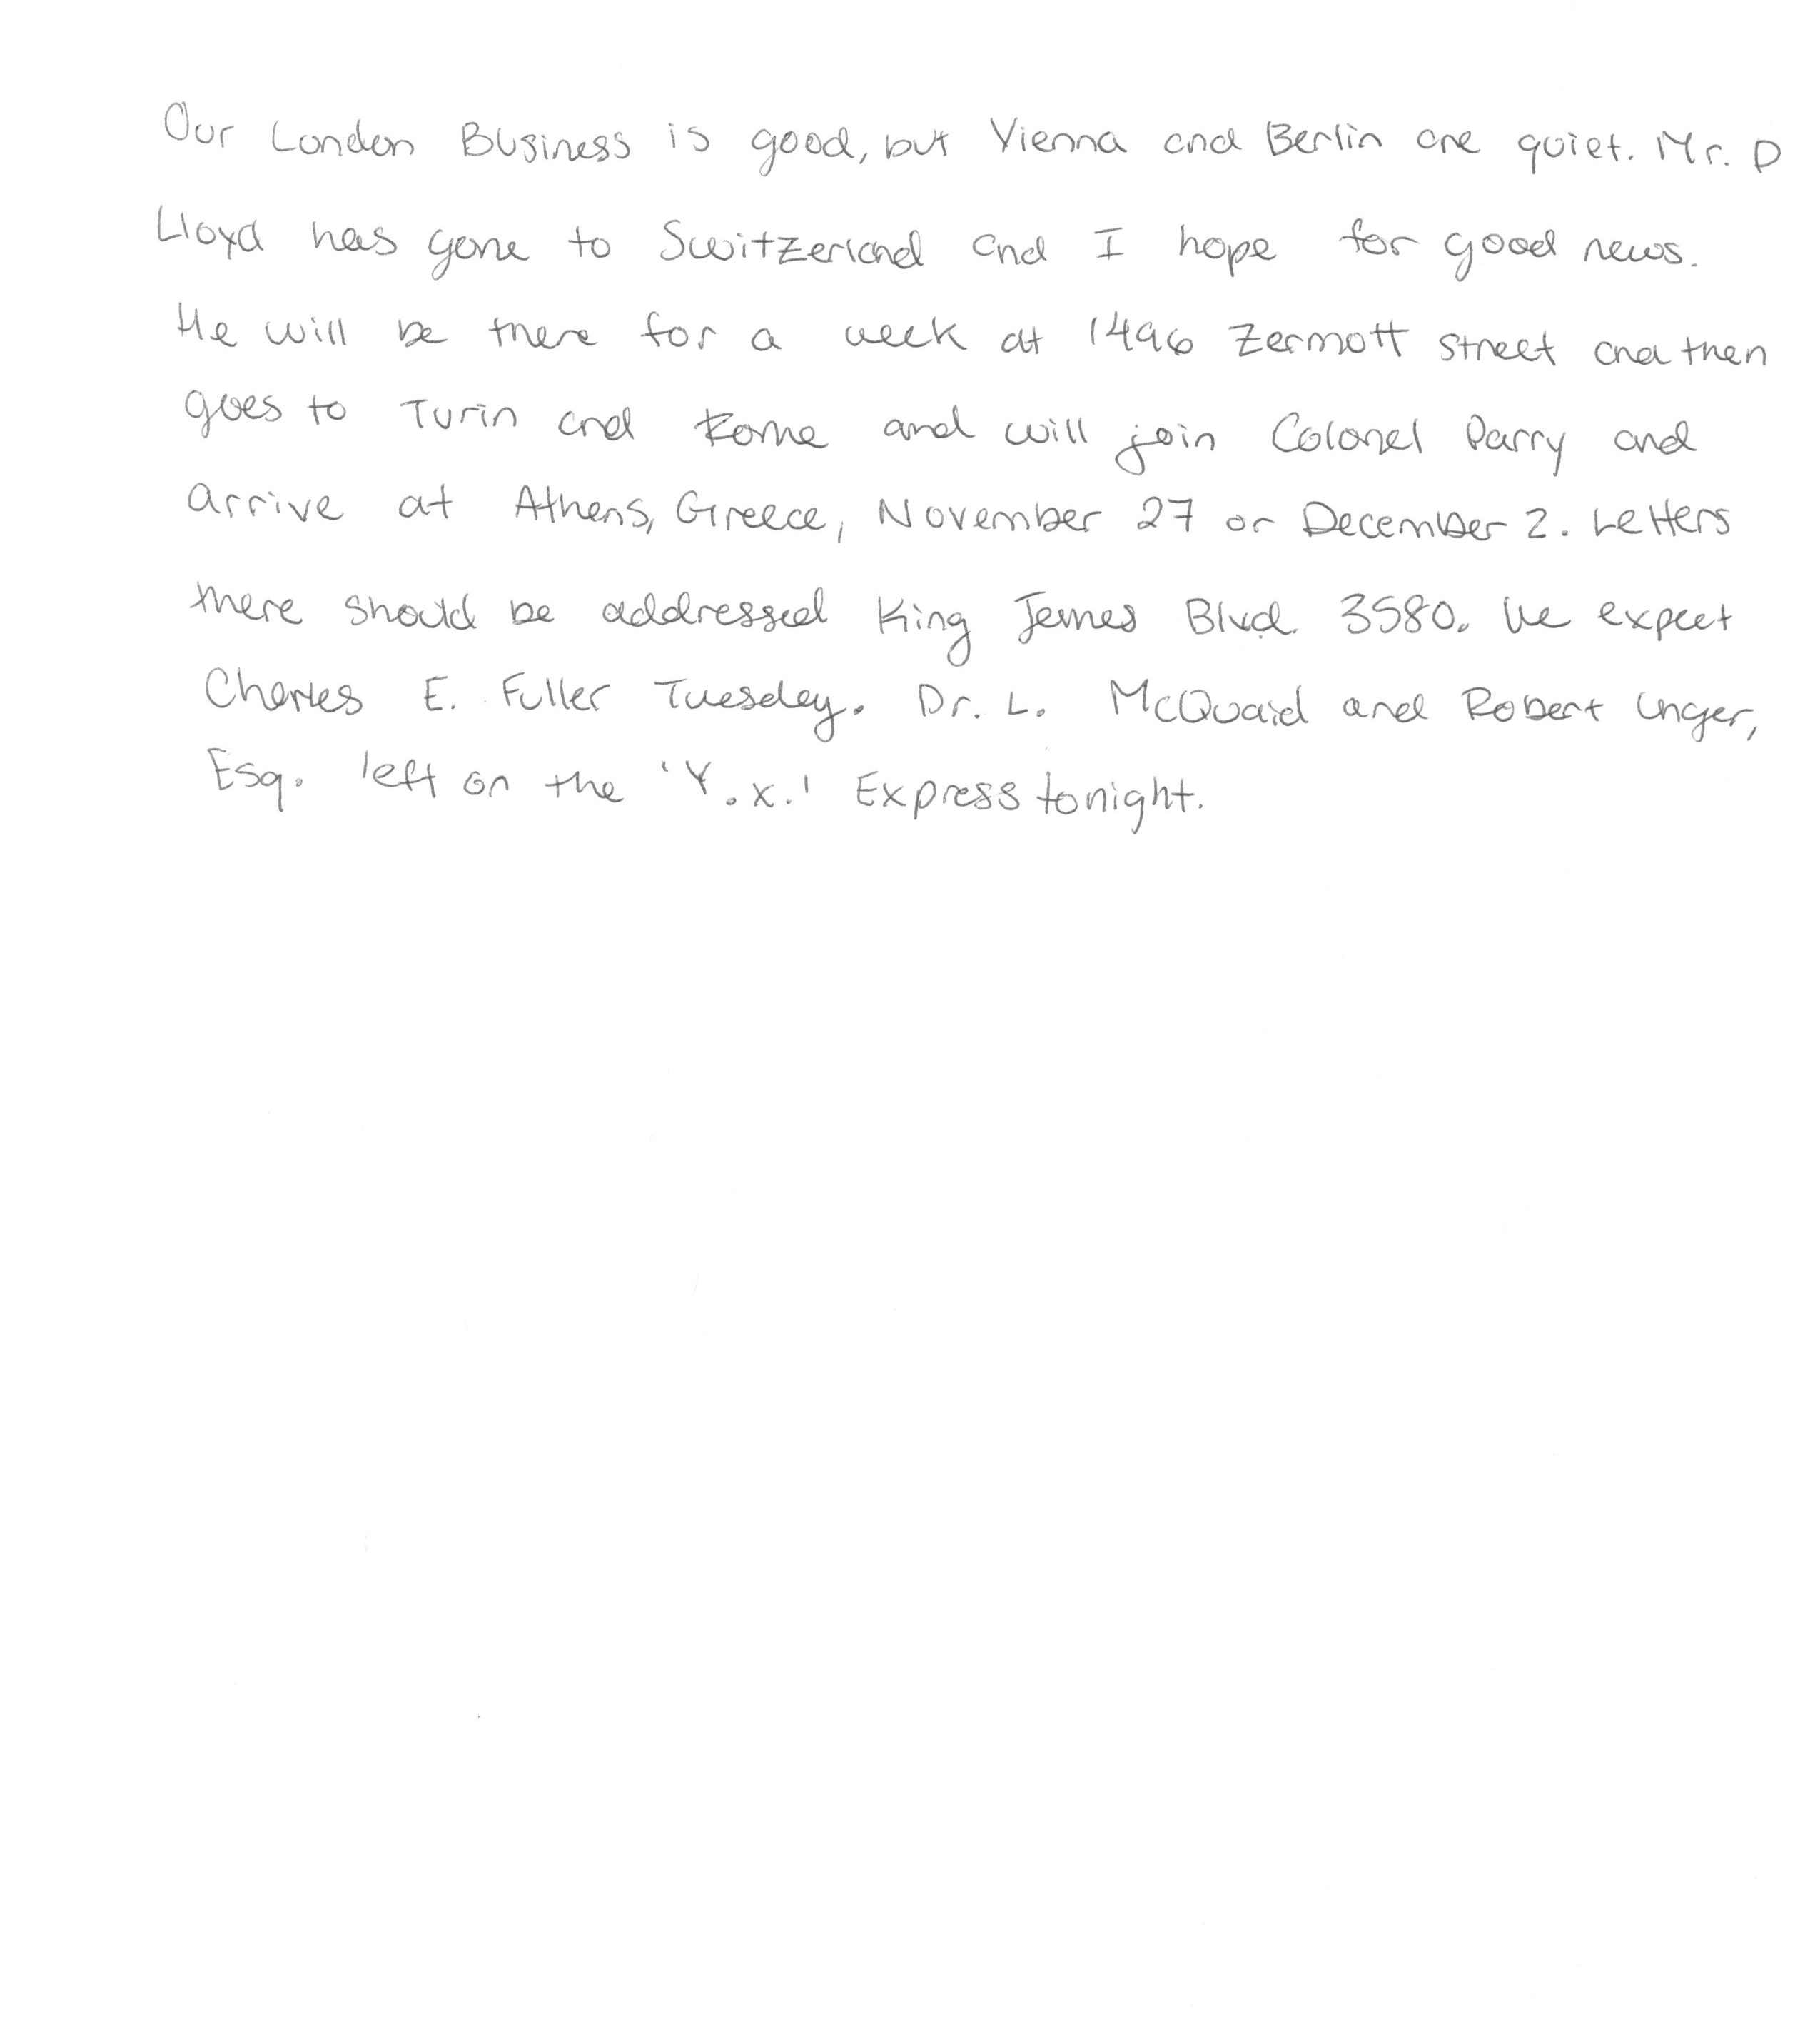 Our London Business is good, but Vienna and Berlin are quiet. Mr. D
Lloyd has gone to Switzerland and I hope for good news.
He will be there for a week at 1496 Zermott street and then
goes to Turin and Rome and will join Colonel Parry and
arrive at Athens, Greece, November 27 or December 2. Letters
there should be addressed King James Blvd. 3580. We expect
Charles E. Fuller Tuesday. Dr. L. McQuaid and Robert Unger,
Esq. left on the 'Y.X.' Express tonight.